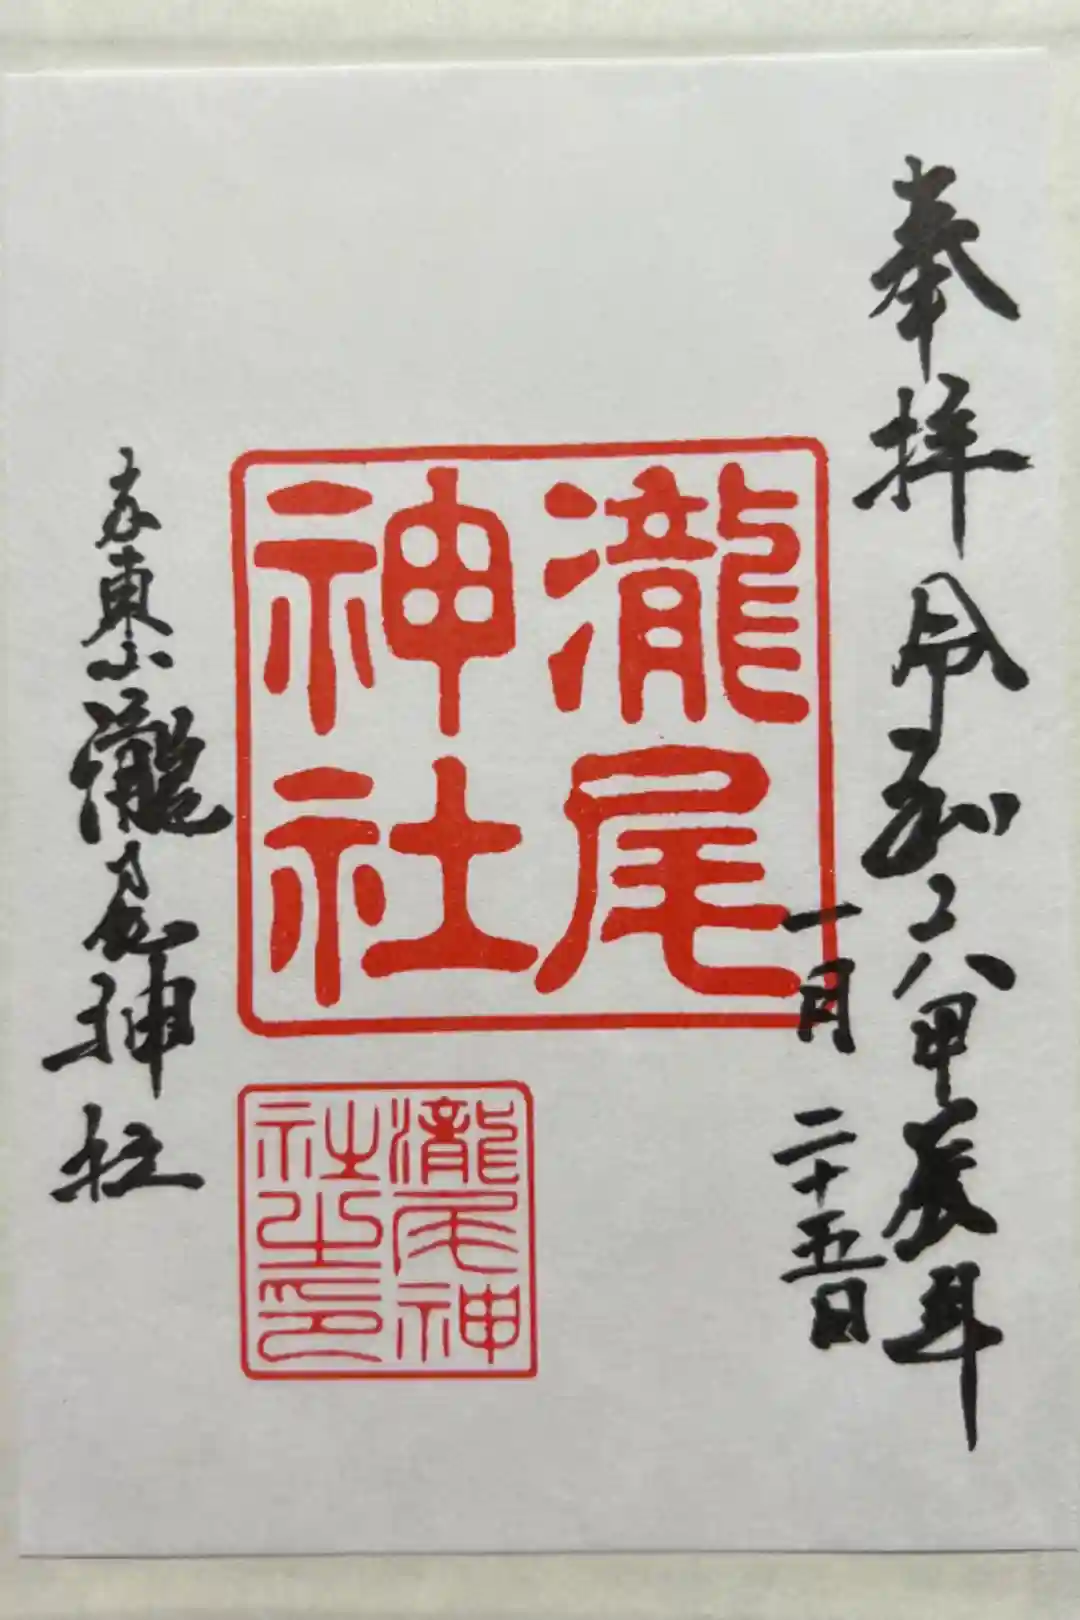 奉拝 令和六甲辰年
一月二十五日
瀧尾
神社
瀧尾神
社之印
東山瀧尾神社